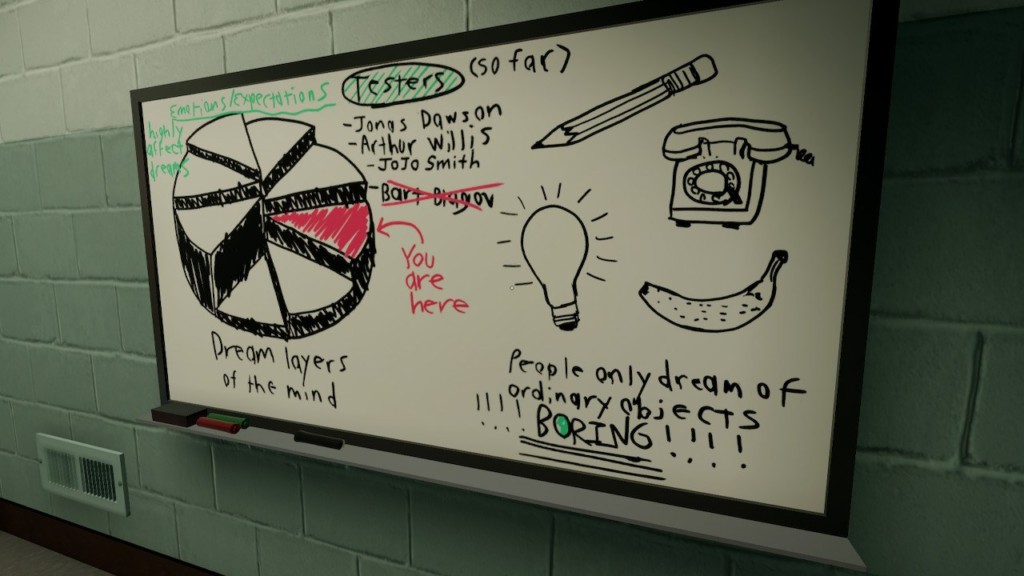 Emotions/expectations
highly
affect
dreams
Testers (so far)
-Jonas Dawson
-Arthur Willis
-JoJo Smith
-Bart Blagov
You
are
here
Dream layers
of the mind
People only dream of
ordinary objects
!!!! BORING!!!!